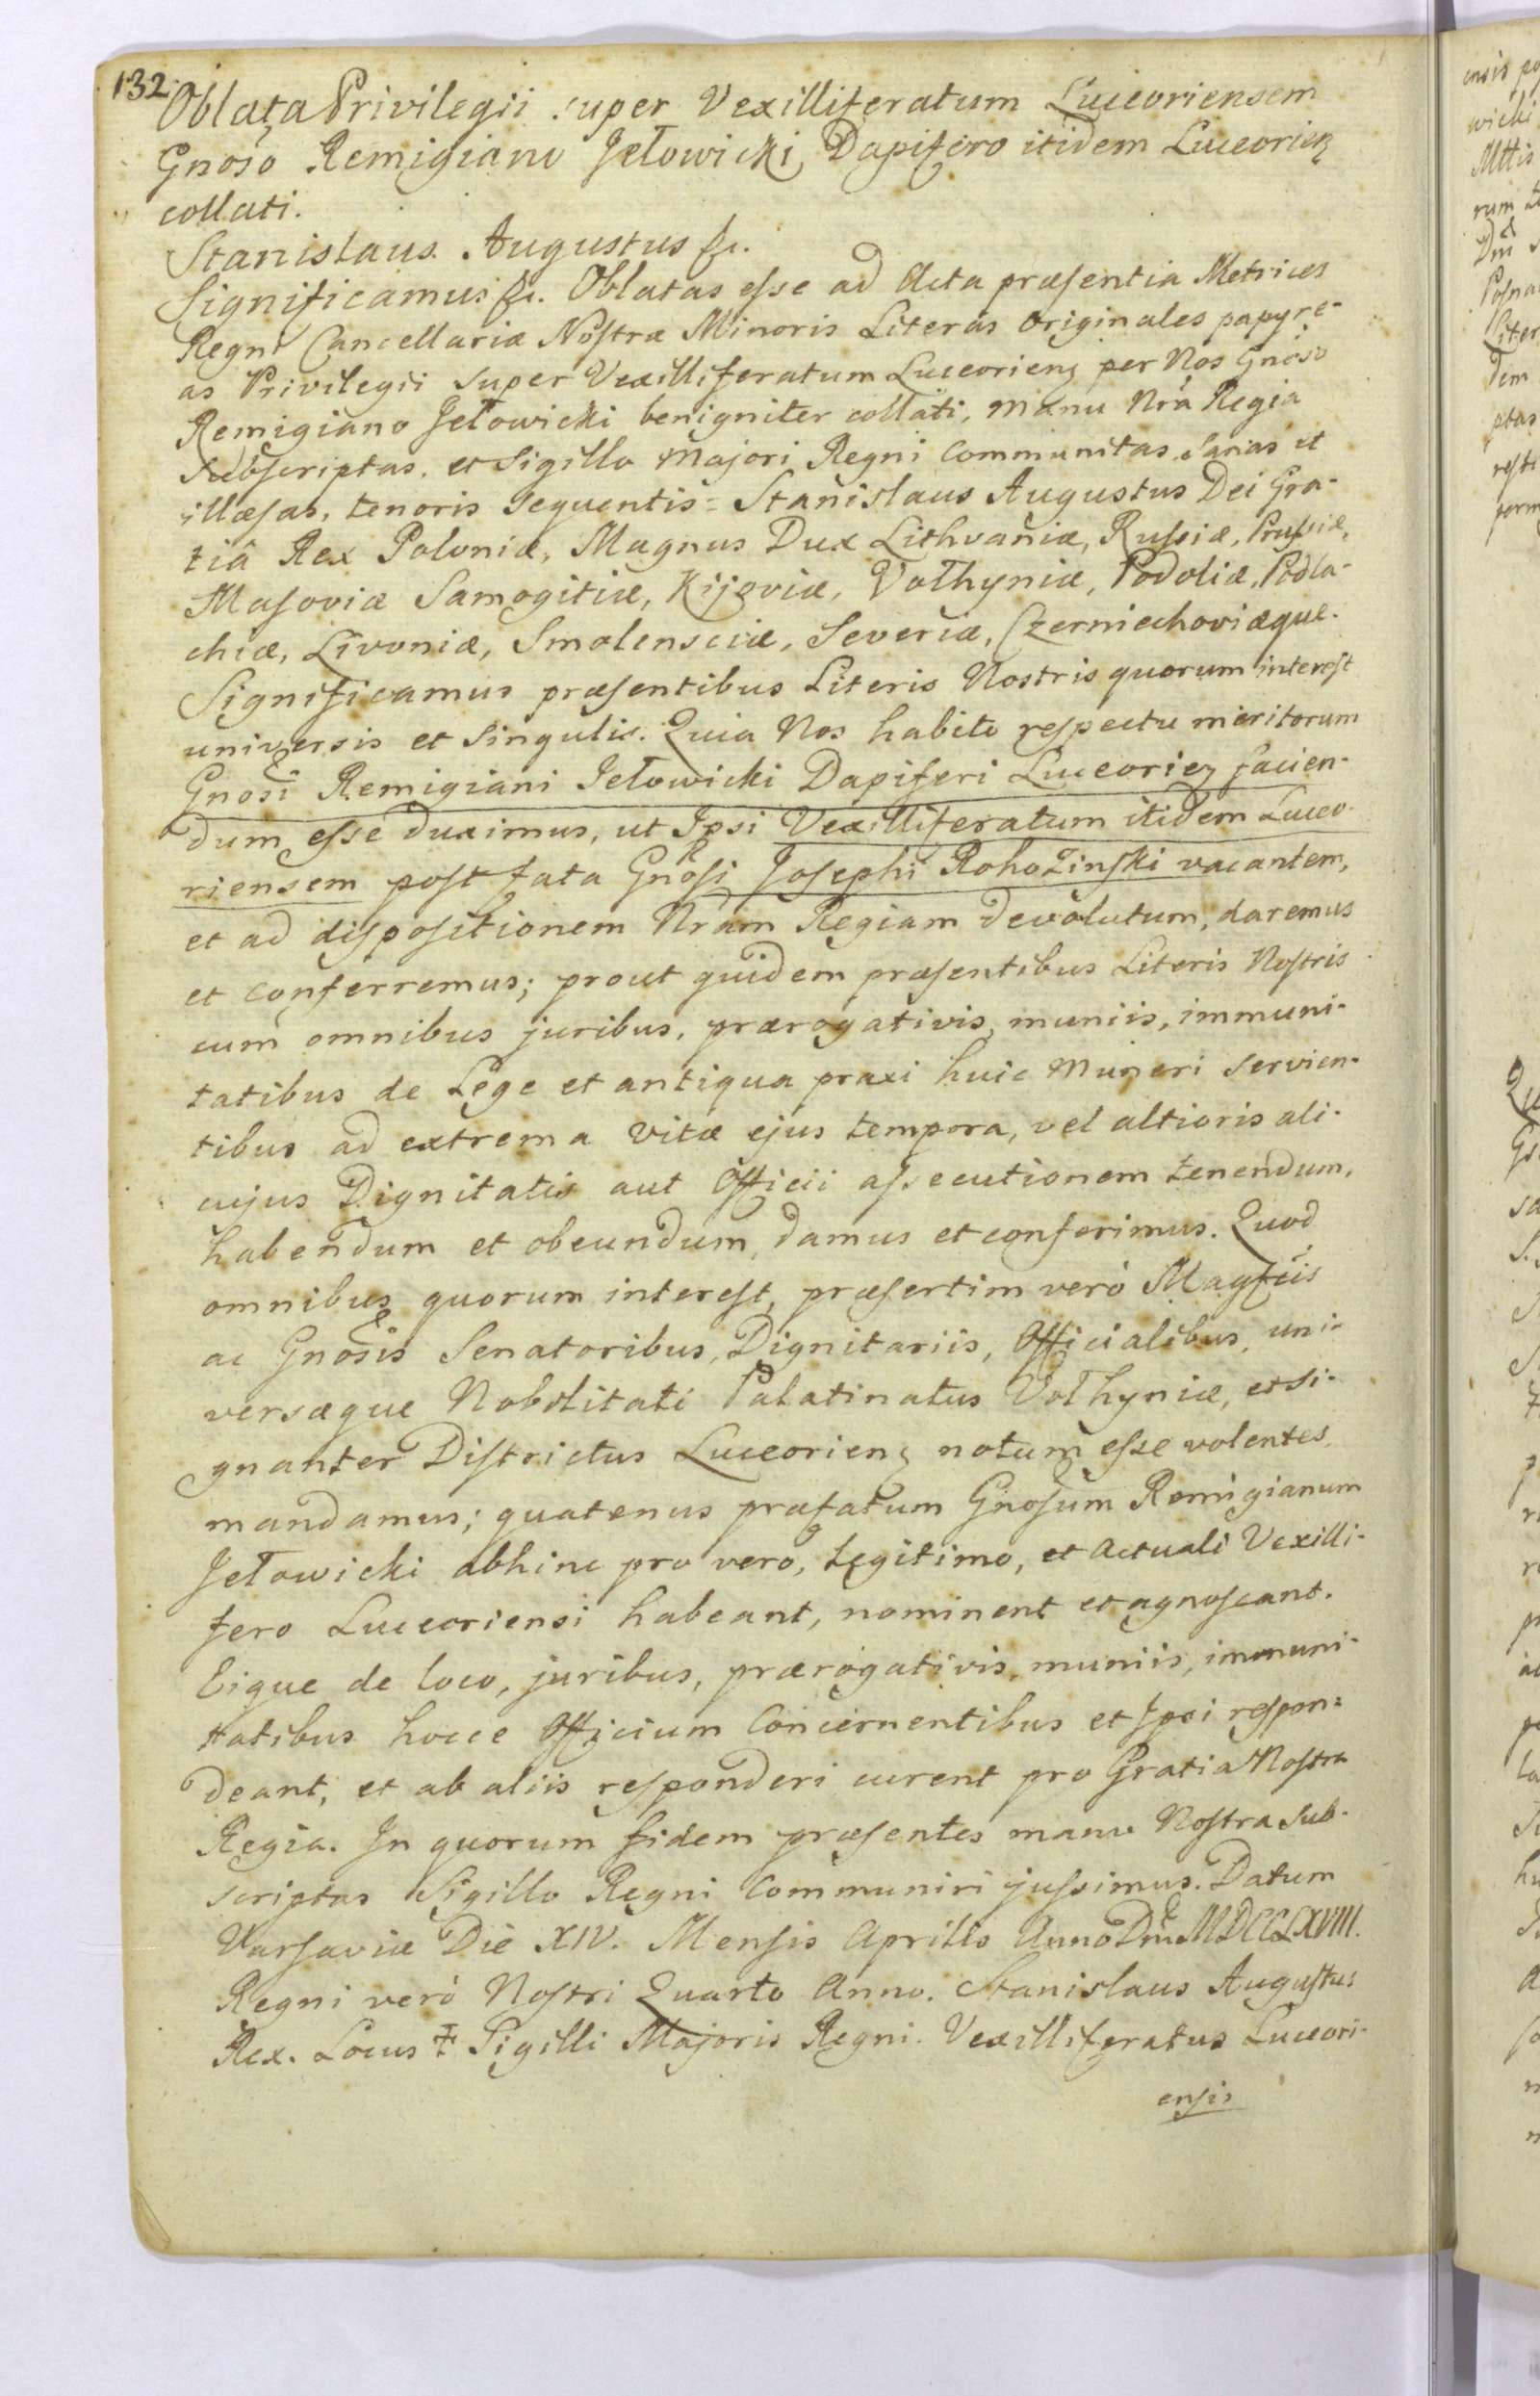 132
Oblata Privilegii super Vexilliferatum Luceoriensem
Gnoso Remigiano Jełowicki Dapifero itidem Luceorienz
collati.
Stanislaus Augustus &c.
Significamus &c. Oblatas esse ad Acta præsentia Metrices
Regni Cancellariæ Nostræ Minoris Literas Originales papyre-
as Privilegii super Vexilliferatum Luceorienz per Nos Gnoso
Remigiano Jełowicki benigniter collati, manu Nrâ Regia
subscriptas, et Sigillo Majori Regni Communitas Sanas et
illæsas, tenoris sequentis = Stanislaus Augustus Dei Gra-
tiâ Rex Poloniæ, Magnus Dux Lithvaniæ, Russiæ, Prussiæ,
Masoviæ Samogitiæ, Kijoviæ, Volhyniæ, Podoliæ, Podla-
chiæ, Livoniæ, Smolensciæ, Severiæ, Czerniechoviæque.
Significamus præsentibus Literis Nostris quorum interest
universis et Singulis. Quia Nos habito respectu meritorum
Gnosi Remigiani Jełowicki Dapiferi Luceorienz facien-
dum esse duximus, ut Ipsi Vexilliferatum itidem Luceo-
riensem post fata Gnosi Josephi Rohozinski vacantem,
et ad dispositionem Nram Regiam devolutum, daremus
et conferremus; prout quidem præsentibus Literis Nostris
cum omnibus juribus, prærogativis, muniis, immuni-
tatibus de Lege et antiqua praxi huic Muneri servien-
tibus ad extrema vitæ ejus tempora, vel altioris ali-
cujus Dignitatis aut Officii assecutionem tenendum,
habendum et obeundum, damus et conferimus. Quod
omnibus quorum interest, præsertim verò Magfcis
ac Gnosis Senatoribus, Dignitariis, Officialibus, uni-
versæque Nobilitati Palatinatus Volhyniæ, et si-
gnanter Districtus Luceorienz notum esse volentes,
mandamus; quatenus præfatum Gnosum Remigianum
Jełowicki abhinc pro vero, legitimo, et Actuali Vexilli-
fero Luceoriensi habeant, nominent et agnoscant.
Eique de loco, juribus, prærogativis, muniis, immuni-
tatibus hocce Officium Concernentibus et Ipsi respon-
deant, et ab aliis responderi curent pro Gratia Nostra
Regia. In quorum fidem præsentes manu Nostra sub-
scriptas Sigillo Regni Communiri jussimus. Datum
Varsaviæ Die XIV. Mensis Aprilis Anno Dni MDCCLXVIII.
Regni verò Nostri Quarto Anno. Stanislaus Augustus
Rex. Locus ‡ Sigilli Majoris Regni. Vexilliferatus Luceori-
ensis